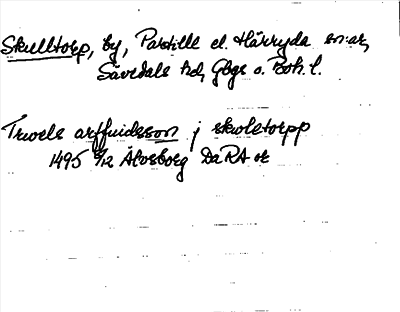 Skulltorp, by, Partille el. Härryda sn:ar,
Sävedals hd, Gbgs o. Boh. l.
Truels arffuidsson j skoletorpp
1495 8/12 Älvsborg DaRA or